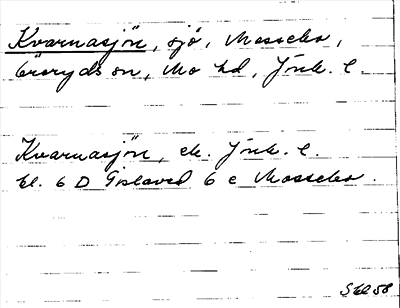 Kvarnasjön, sjö, Mossebo,
Öreryds sn, Mo hd, Jönk. l.
Kvarnasjön, ek. Jönk. l.
bl. 6 D Gislaved 6 e Mossebo.
SEl 58